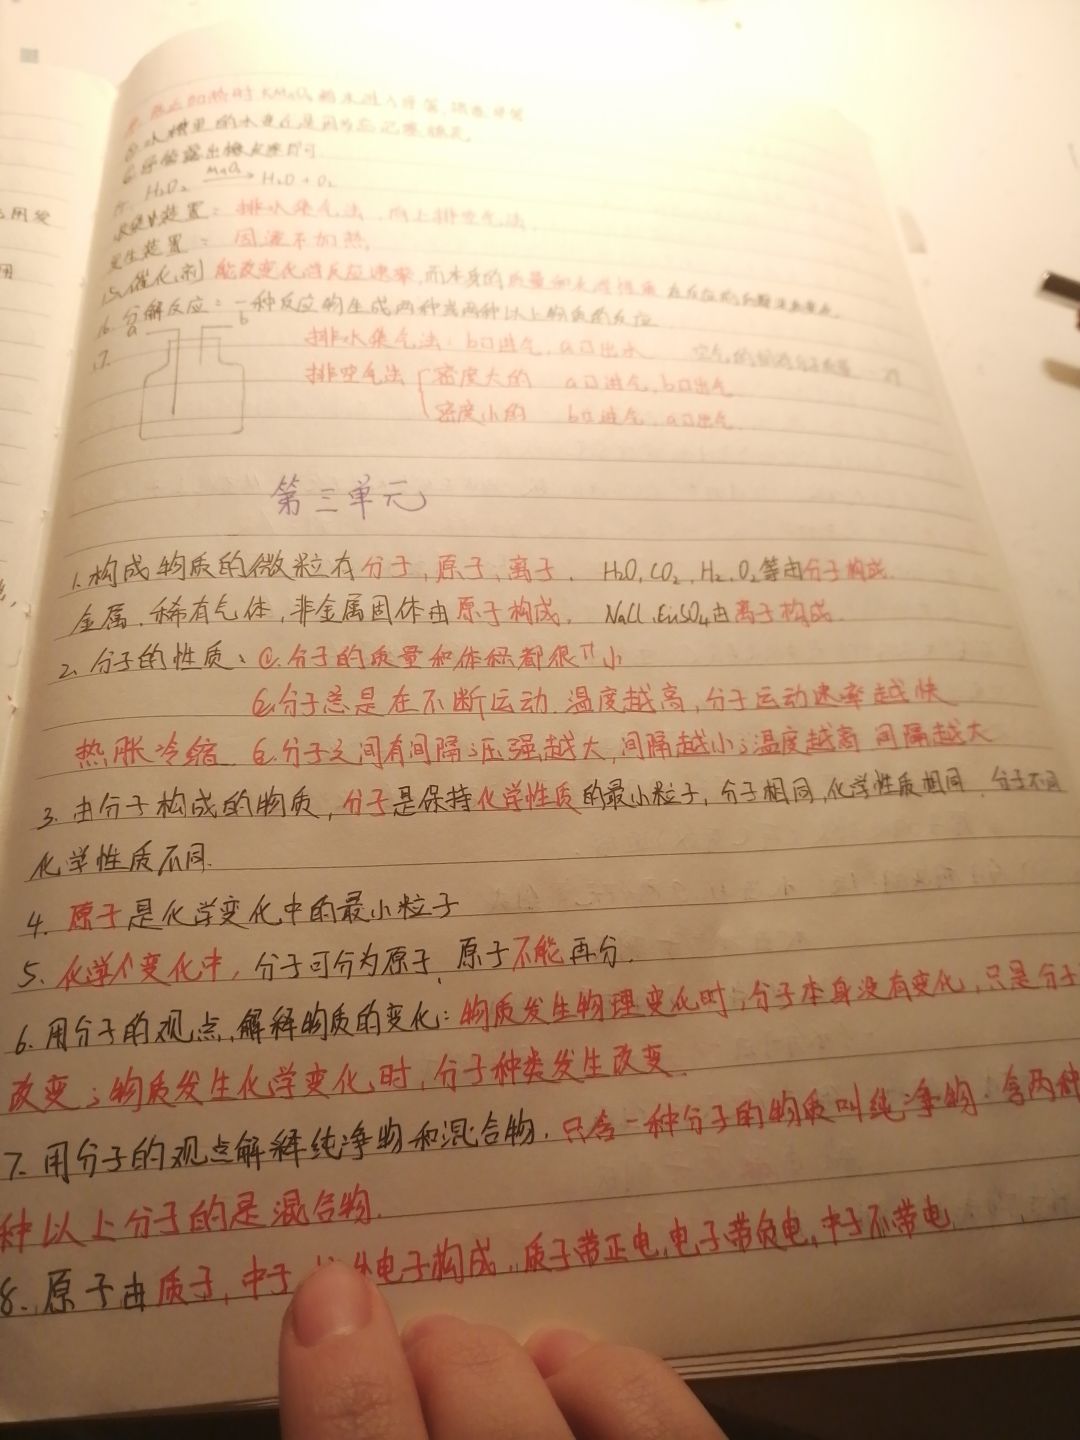 H₂O₂ MnO₂ H₂O + O₂
收集装置：排水集气法、向上排空气法
发生装置：固液不加热
15.催化剂 能改变化学反应速率,而本身的质量和化学性质
16.分解反应：一种反应物生成两种或两种以上物质的反应
17. a b 排水集气法：b口进气,a口出水
排空气法 密度大的 a口进气,b口出气
密度小的 b口进气,a口出气
第三单元
1.构成物质的微粒有分子,原子,离子. H₂O,CO₂,H₂,O₂等由分子构成.
金属,稀有气体,非金属固体由原子构成, NaCl,CuSO₄由离子构成
2.分子的性质：①.分子的质量和体积都很小
②分子总是在不断运动.温度越高,分子运动速率越快
热胀冷缩 分子之间有间隔;压强越大,间隔越小;温度越高 间隔越大
3.由分子构成的物质,分子是保持化学性质的最小粒子,分子相同,化学性质相同,分子不同
化学性质不同.
4.原子是化学变化中的最小粒子
5.化学变化中,分子可分为原子,原子不能再分.
6.用分子的观点,解释物质的变化：物质发生物理变化时,分子本身没有变化,只是分子
改变;物质发生化学变化时,分子种类发生改变.
7.用分子的观点解释纯净物和混合物.只含一种分子的物质叫纯净物.含两种
种以上分子的是混合物.
8.原子由质子,中子 电子构成.质子带正电,电子带负电,中子不带电